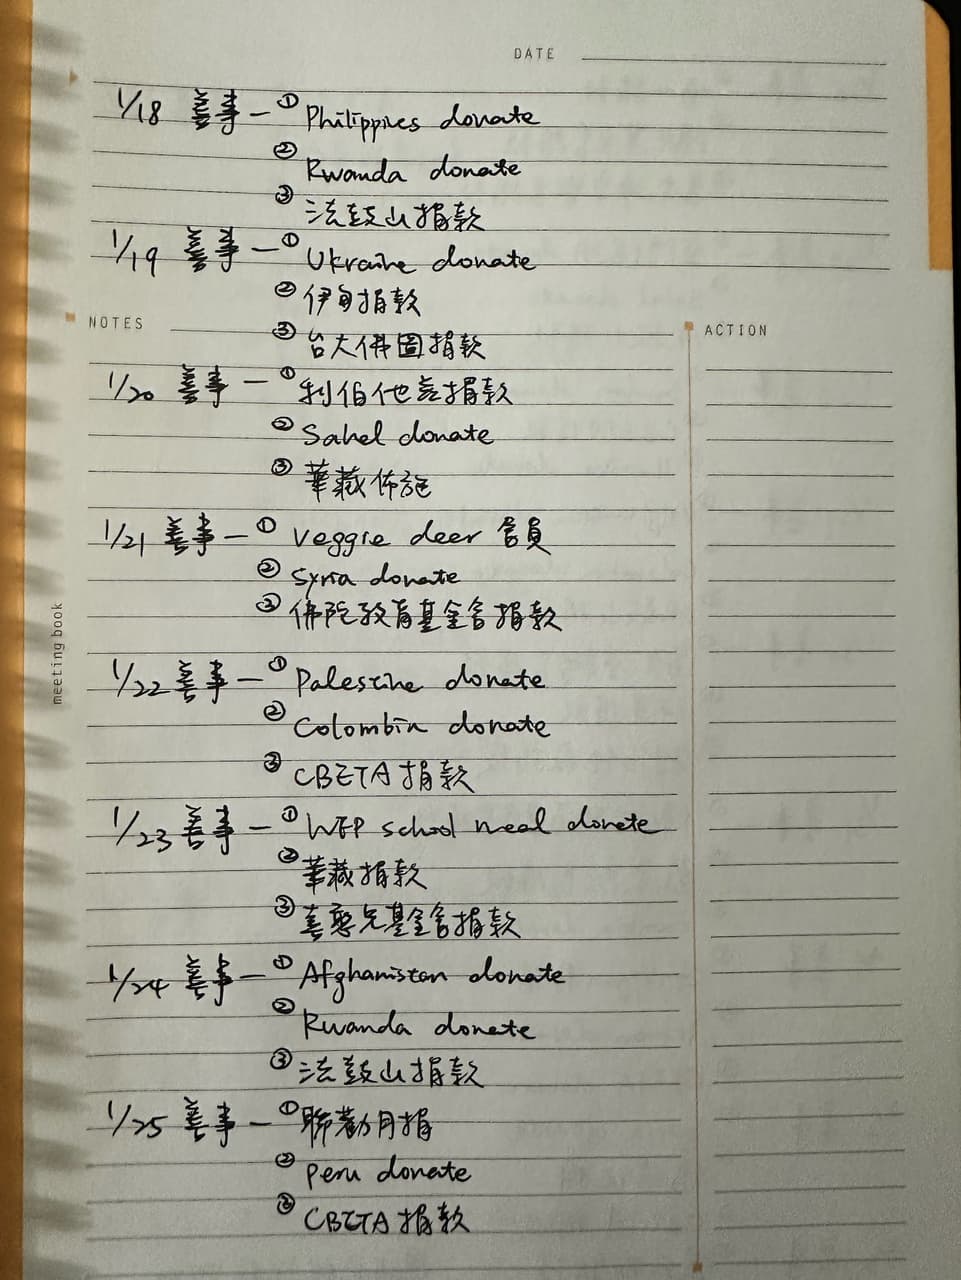 DATE
1/18 善事 - ① Philippines donate
② Rwanda donate
③ 法鼓山捐款
1/19 善事 - ① Ukraine denate
② 伊甸捐款
NOTES
③ 台大佛圖捐款
ACTION
1/20 善事 - ① 利伯他茲捐款
② Sahel donate
③ 華藏佈施
1/21 善事 - ① Veggie deer 會員
② Syria donate
③ 佛陀教育基金會捐款
meeting book
1/22 善事 - ① Palestine donate
② Colombia donate
③ CBETA 捐款
1/23 善事 - ① WFP school meal donate
② 華藏捐款
③ 喜憨兒基金會捐款
1/24 善事 - ① Afghanistan donate
② Rwanda donate
③ 法鼓山捐款
1/25 善事 - ① 聯勸月捐
② Peru donate
③ CBETA 捐款